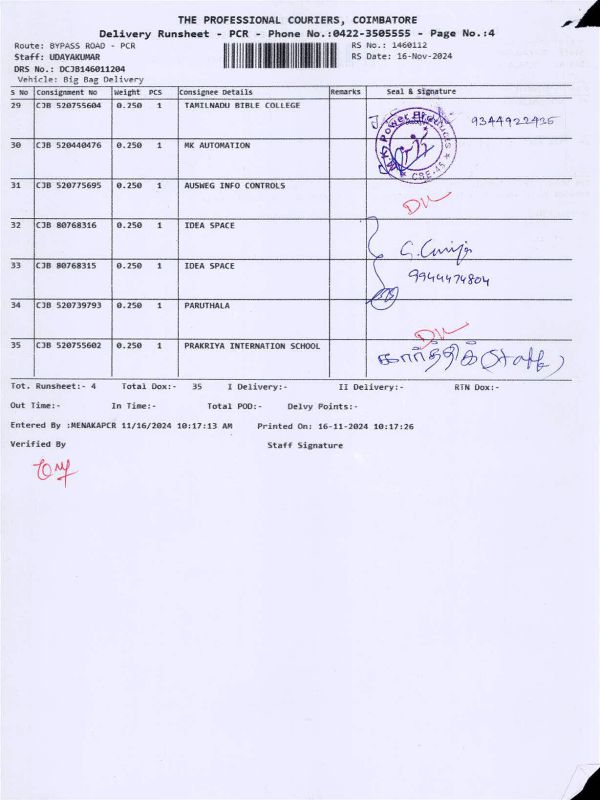 THE PROFESSIONAL COURIERS, COIMBATORE
Delivery Runsheet - PCR - Phone No.:0422-3505555 - Page No.:4
Route: BYPASS ROAD - PCR RS No.: 1460112
Staff: UDAYAKUMAR RS Date: 16-Nov-2024
DRS No.: DCJB146011204
Vehicle: Big Bag Delivery
S No Consignment No Weight PCS Consignee Details Remarks Seal & Signature
29 CJB 520755604 0.250 1 TAMILNADU BIBLE COLLEGE 9344922435
30 CJB 520440476 0.250 1 MK AUTOMATION
31 CJB 520775695 0.250 1 AUSWEG INFO CONTROLS
32 CJB 80768316 0.250 1 IDEA SPACE
33 CJB 80768315 0.250 1 IDEA SPACE 9944474804
34 CJB 520739793 0.250 1 PARUTHALA
35 CJB 520755602 0.250 1 PRAKRIYA INTERNATION SCHOOL கார்த்திக் (Staff)
Tot. Runsheet:- 4 Total Dox:- 35 I Delivery:- II Delivery:- RTN Dox:-
Out Time:- In Time:- Total POD:- Delvy Points:-
Entered By :MENAKAPCR 11/16/2024 10:17:13 AM Printed On: 16-11-2024 10:17:26
Verified By Staff Signature